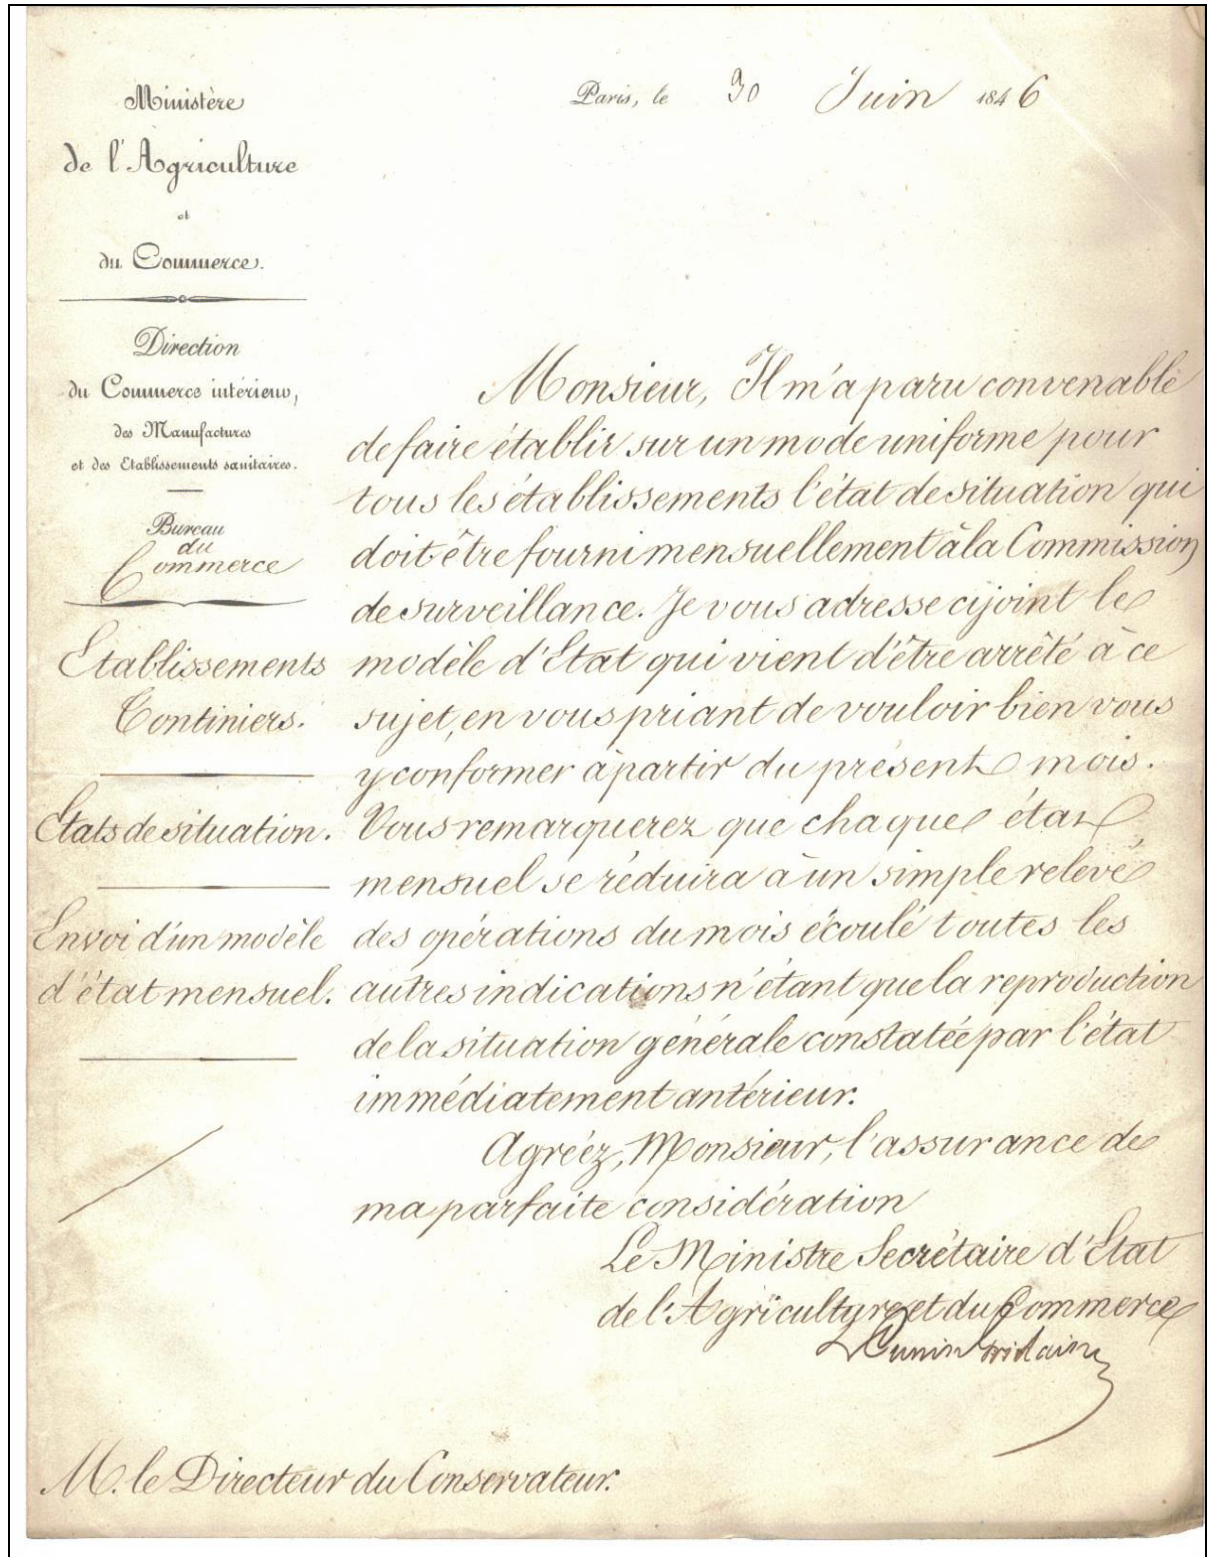 Ministère
de l'Agriculture
et
du Commerce.
Direction
du Commerce intérieur,
des Manufactures
et des Etablissements sanitaires.
Bureau
du
Commerce
Etablissements
Tontiniers.
Etats de situation.
Envoi d'un modèle
d'état mensuel.
Paris, le 30 Juin 1846
Monsieur, Il m'a paru convenable
de faire établir sur un mode uniforme pour
tous les établissements l'état de situation qui
doit être fourni mensuellement à la Commission
de surveillance. Je vous adresse cijoint le
modèle d'Etat qui vient d'être arrêté à ce
sujet, en vous priant de vouloir bien vous
y conformer à partir du présent mois.
Vous remarquerez que chaque état
mensuel se réduira à un simple relevé
des opérations du mois écoulé toutes les
autres indications n'étant que la reproduction
de la situation générale constatée par l'état
immédiatement antérieur.
Agréez, Monsieur, l'assurance de
ma parfaite considération
Le Ministre Secrétaire d'Etat
de l'Agriculture et du Commerce
Cunin Gridaine
M. le Directeur du Conservateur.